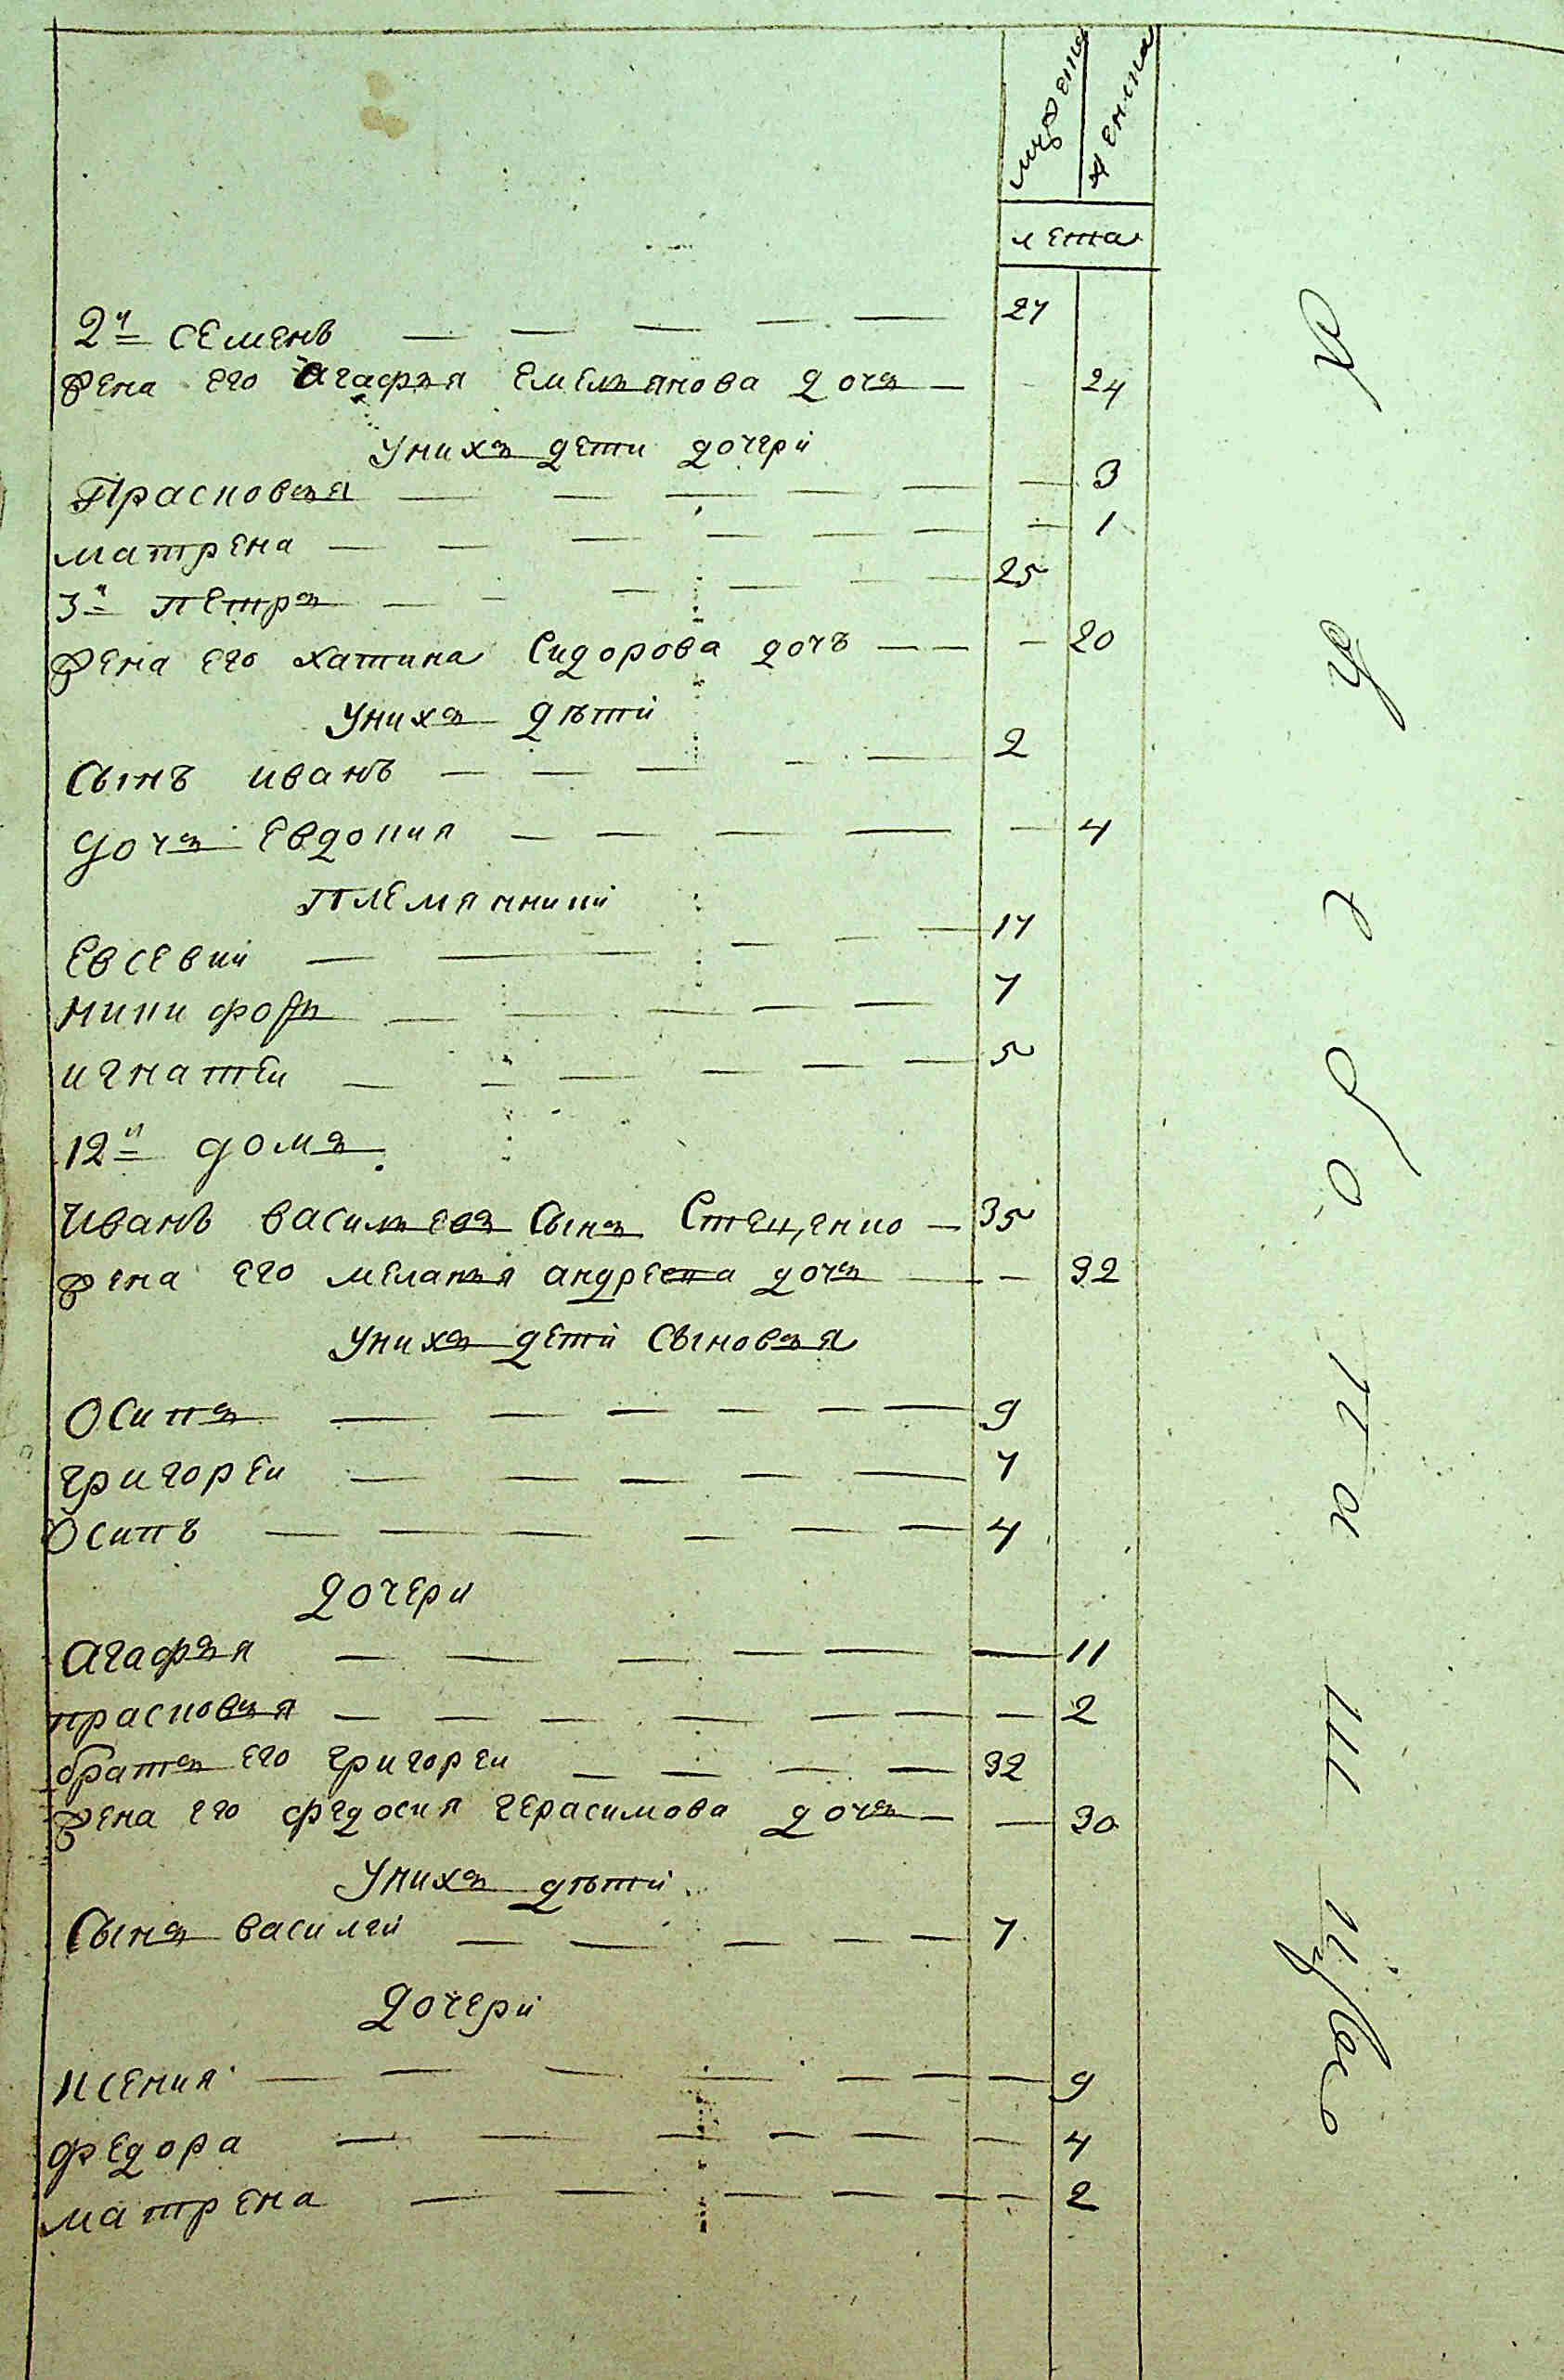 мужеска
женска
лета
2й Семенъ — — — — — 27
жена его Агафъя Емельянова дочъ — - 24
Унихъ дети дочери
Прасковъя — — — — — — 3
матрена — — — — — — — 1
3й Петръ — - — — — — 25
жена его хатина Сидорова дочъ — — — 20
Унихъ дѣти
Сынъ иванъ — — — — — 2
дочъ Евдокия — — — — — 4
племянники
Евсевий — — — — — 17
никифоръ — — — — — 7
игнатеи — — — — — — 5
12й домъ.
Иванъ Васильевъ Сынъ Стеценко — 35
жена его меланья андреева дочъ — — 32
Унихъ дети Сыновья
Осипъ — — — — — — 9
григореи — — — — — 7
Осипъ — — — — — — 4
Дочери
Агафъя — — — — — — 11
прасковъя — — — — — — — 2
братъ его григореи — — — — 32
жена его федосия герасимова дочъ — — 30
Унихъ дѣти
Сынъ василей — — — — — 7
Дочери
ксения — — — — — — — 9
федора — — — — — — — 4
матрена — — — — — — 2